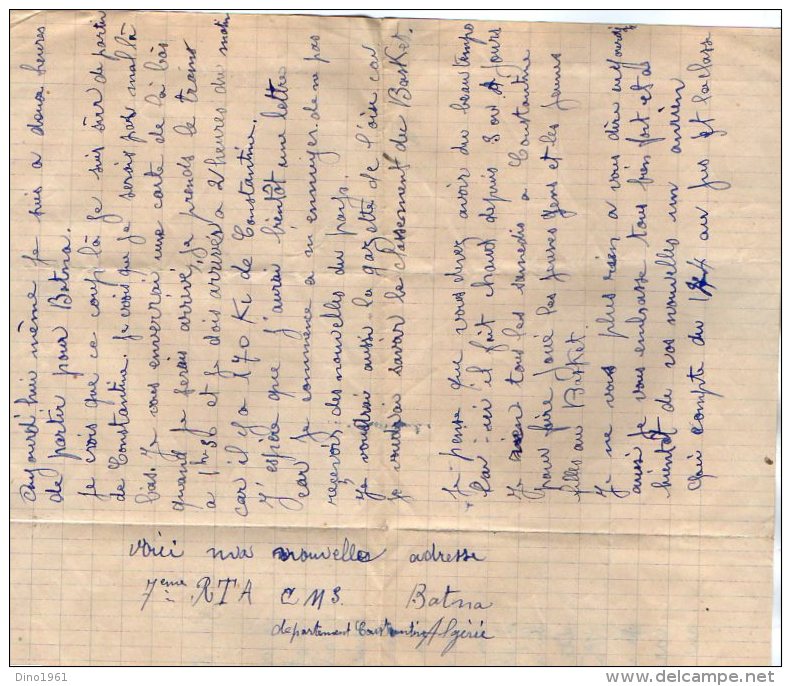 aujourd'hui même je suis a doux heures
de partir pour Batna.
Je crois que ce coup là je suis sûr de partir
de Constantine. Je crois que je serais pas mal là
bas. Je vous enverrai une carte de là bas
quand je serais arrivé, je prends le train
a 1h 36 et je dois arriver a 2 heures du matin
car il y a 170 Ki de Constantine.
J'espère que j'aurai bientôt une lettre
car je commence a m'ennuyer de ne pas
recevoir des nouvelles du pays.
Je voudrai aussi la gazette de l'oise car
je voudrai savoir le classement du Basket.
Je pense que vous devez avoir du beau temps
car ici il fait chaud depuis 3 ou 4 jours
Je tous les samedis a Constantine
pour faire joué les jeunes gens et les jeunes
filles au Basket.
Je ne vois plus rien a vous dire aujourd'hui
aussi je vous embrasse tous bien fort et a
bientôt de vos nouvelles un ancien
Qui compte du au jus et la classe
Voici ma nouvelles adresse
7ème RTA CMS. Batna
département Constantine Algérie
Dino1961
www.delcampe.net